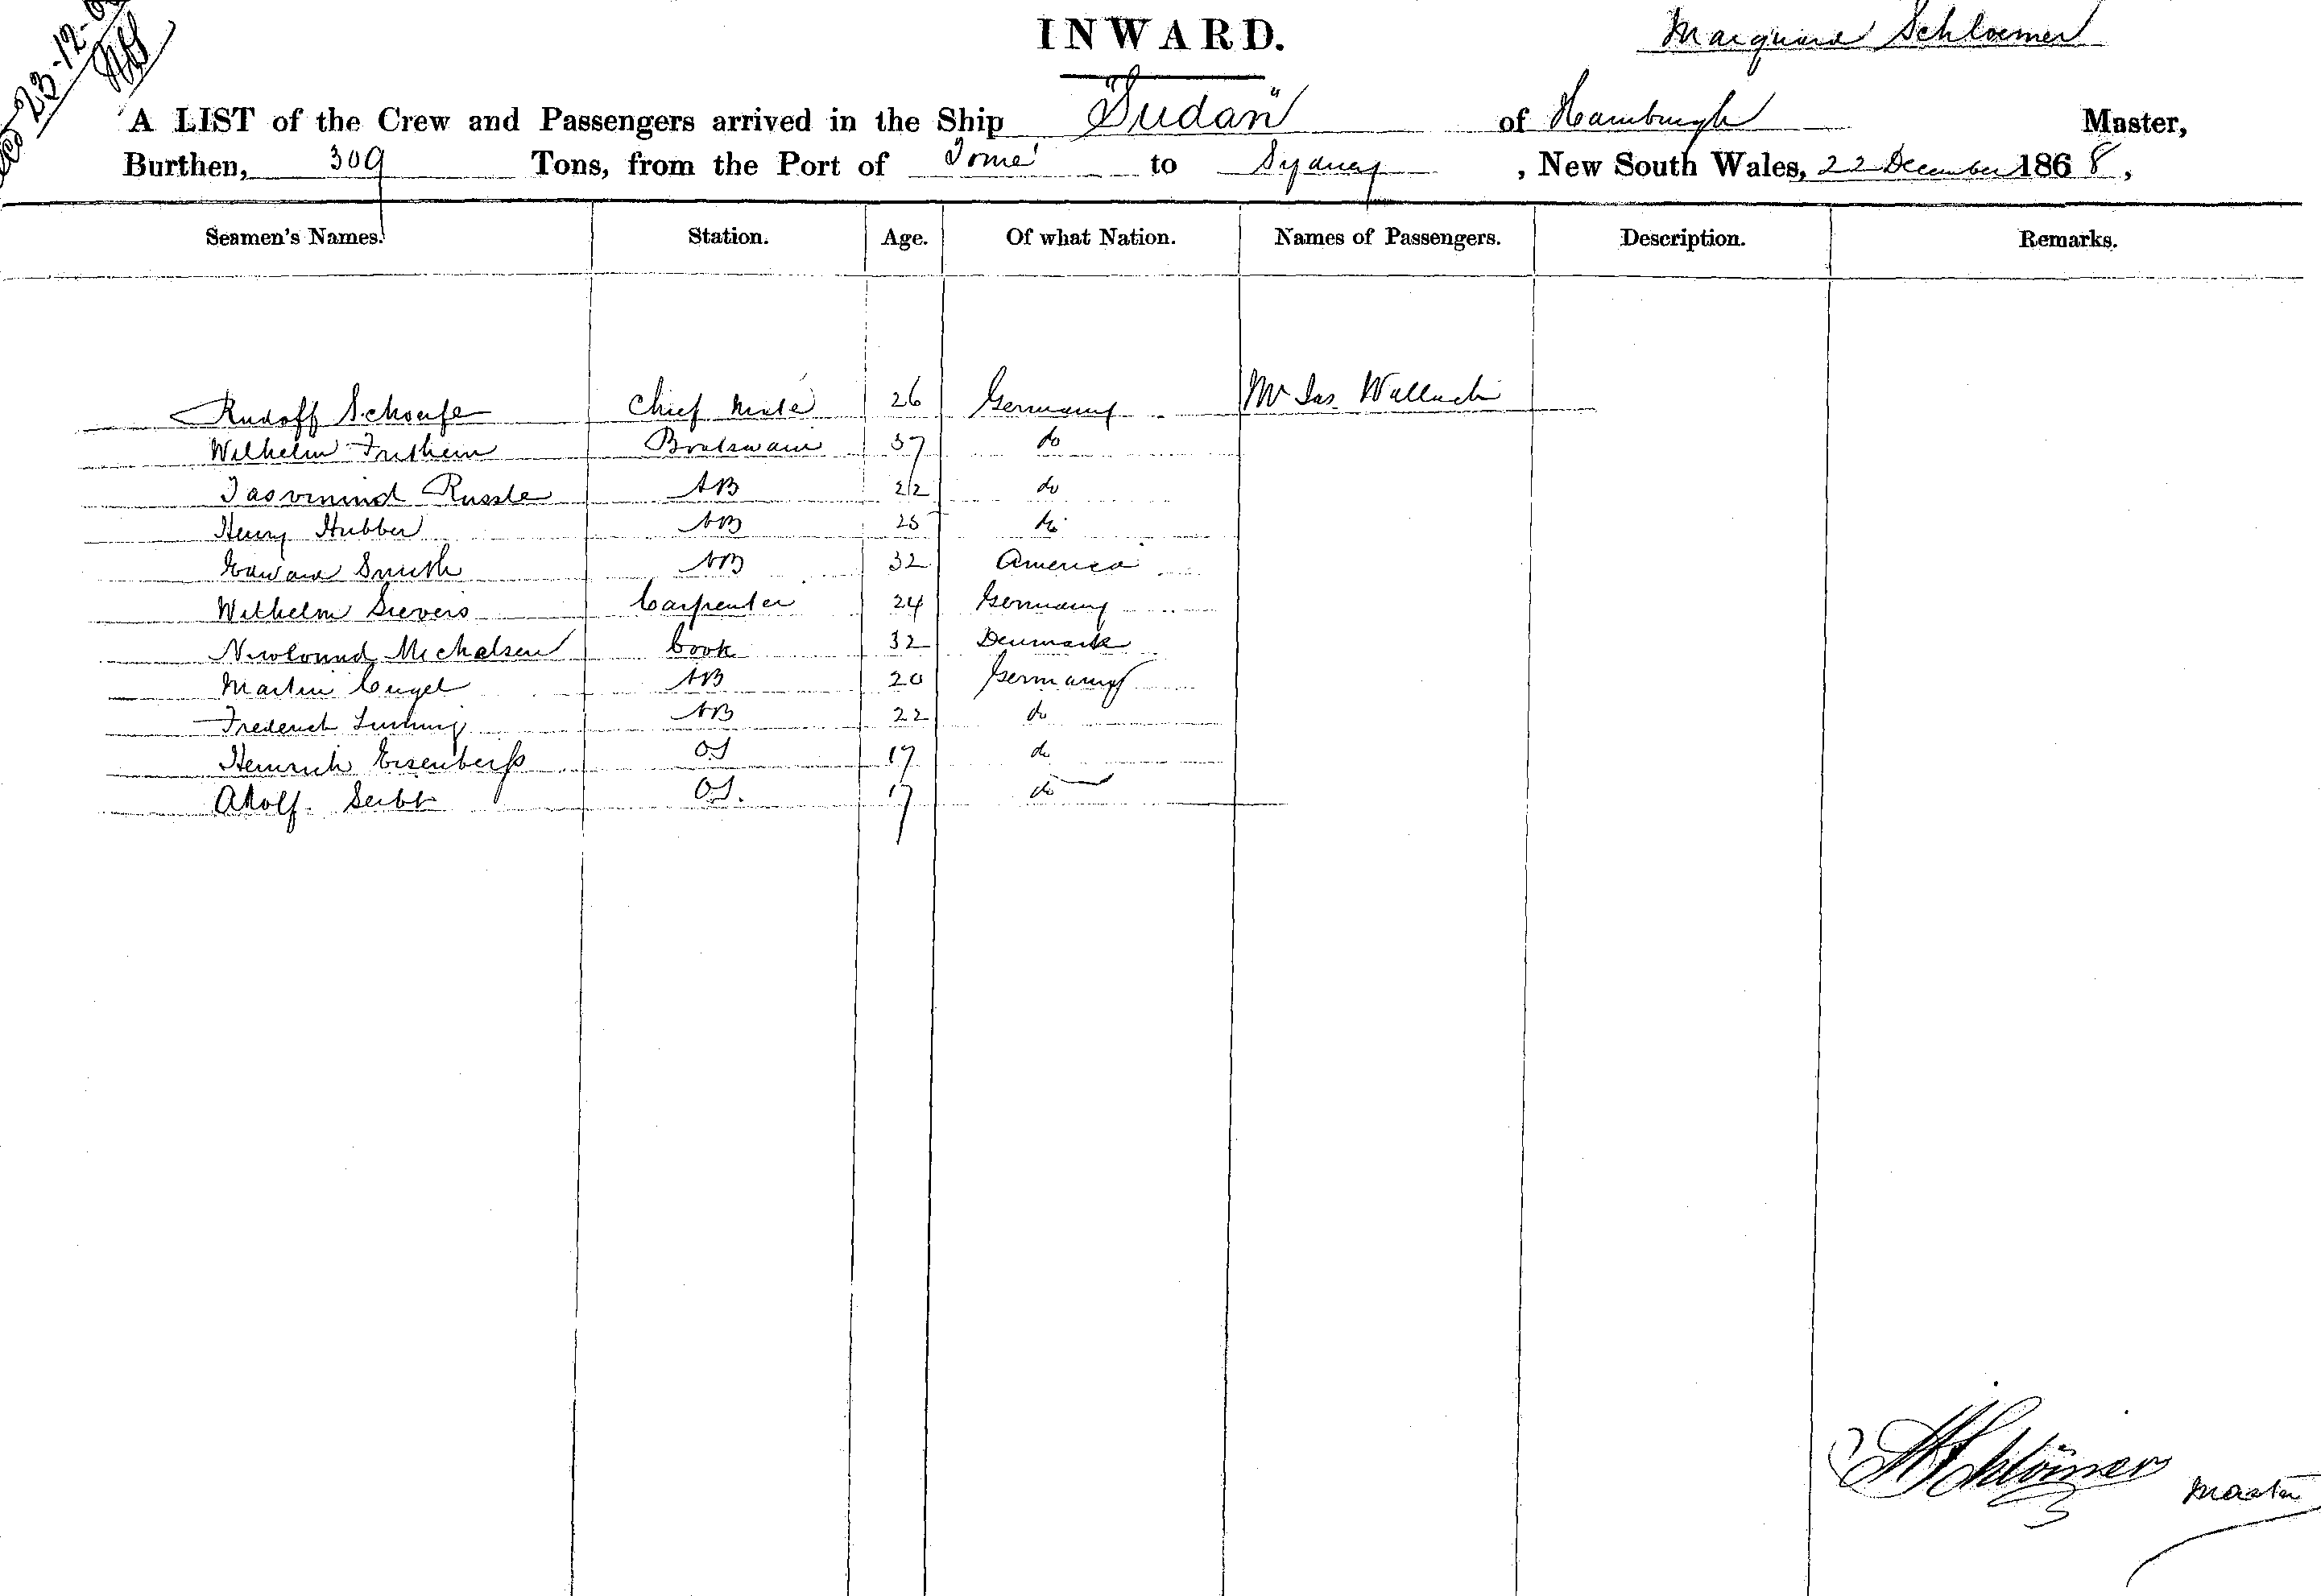 23-12-
INWARD.
Marquard Schloemer
A LIST of the Crew and Passengers arrived in the Ship "Sudan" of Hamburgh Master,
Burthen, 309 Tons, from the Port of Tomé to Sydney, New South Wales, 22 December 1868,
Seamen's Names. Station. Age. Of what Nation. Names of Passengers. Description. Remarks.
Rudolff Chief Mate 26 Germany Mr Jas. Wallach
Wilhelm Boatswain 37 do
Russle AB 22 do
Henry Hubber AB 25 do
Edward Smith AB 32 America
Wilhelm Sievers Carpenter 24 Germany
Michelsen Cook 32 Denmark
Martin AB 20 Germany
Frederich AB 22 do
Heinrich OS 17 do
Adolf OS. 17 do
Schlömer Master